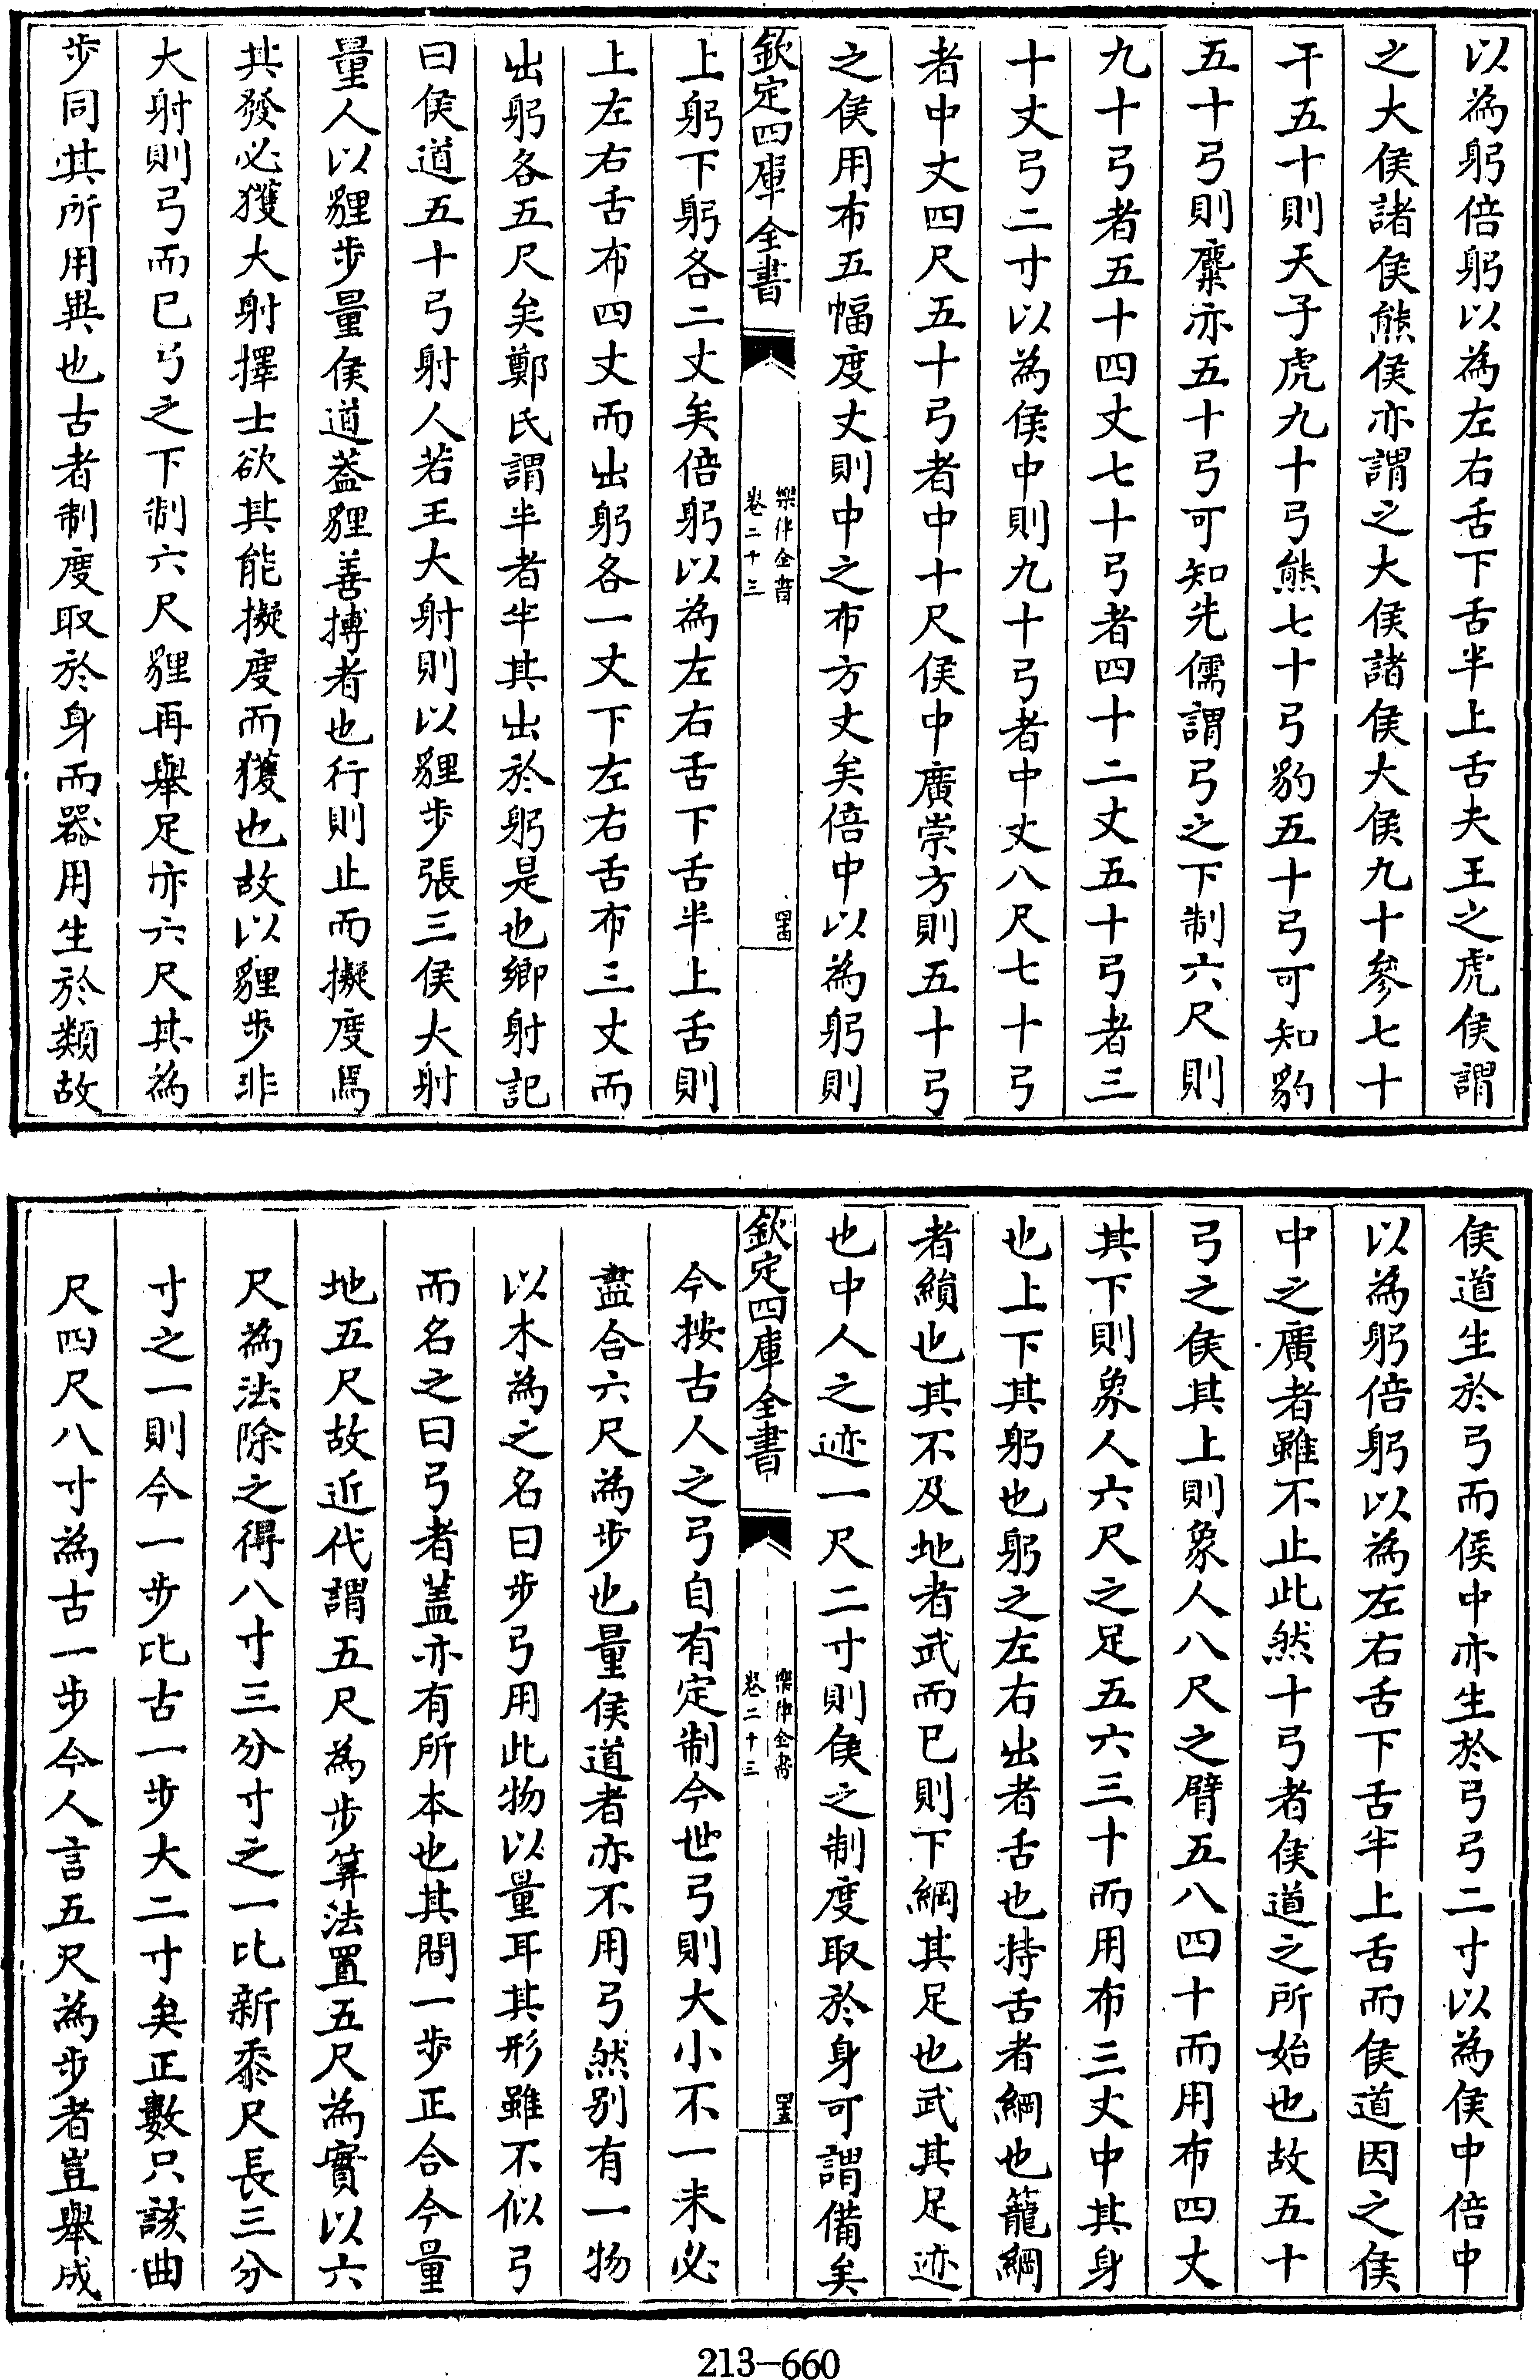 以為躬倍躬以為左右舌下舌半上舌夫王之虎侯謂
之大侯諸侯熊侯亦謂之大侯諸侯大侯九十參七十
干五十則天子虎九十弓熊七十弓豹五十弓可知豹
五十弓則麋亦五十弓可知先儒謂弓之下制六尺則
九十弓者五十四丈七十弓者四十二丈五十弓者三
十丈弓二寸以為侯中則九十弓者中丈八尺七十弓
者中丈四尺五十弓者中十尺侯中廣崇方則五十弓
之侯用布五幅度丈則中之布方丈矣倍中以為躬則
欽定四庫全書
樂律全書
卷二十三
四十四
上躬下躬各二丈矣倍躬以為左右舌下舌半上舌則
上左右舌布四丈而出躬各一丈下左右舌布三丈而
出躬各五尺矣鄭氏謂半者半其出於躬是也鄉射記
曰侯道五十弓射人若王大射則以貍步張三侯大射
量人以貍步量侯道葢貍善搏者也行則止而擬度焉
其發必獲大射擇士欲其能擬度而獲也故以貍步非
大射則弓而已弓之下制六尺貍再舉足亦六尺其為
步同其所用異也古者制度取於身而器用生於類故
侯道生於弓而侯中亦生於弓弓二寸以為侯中倍中
以為躬倍躬以為左右舌下舌半上舌而侯道因之侯
中之廣者雖不止此然十弓者侯道之所始也故五十
弓之侯其上則象人八尺之臂五八四十而用布四丈
其下則象人六尺之足五六三十而用布三丈中其身
也上下其躬也躬之左右出者舌也持舌者綱也籠綱
者縜也其不及地者武而已則下綱其足也武其足迹
也中人之迹一尺二寸則侯之制度取於身可謂備矣
欽定四庫全書
樂律全書
卷二十三
四十五
今按古人之弓自有定制今世弓則大小不一未必
盡合六尺為步也量侯道者亦不用弓然別有一物
以木為之名曰步弓用此物以量耳其形雖不似弓
而名之曰弓者蓋亦有所本也其間一步正合今量
地五尺故近代謂五尺為步筭法置五尺為實以六
尺為法除之得八寸三分寸之一比新黍尺長三分
寸之一則今一步比古一步大二寸矣正數只該曲
尺四尺八寸為古一步今人言五尺為步者豈舉成
213-660